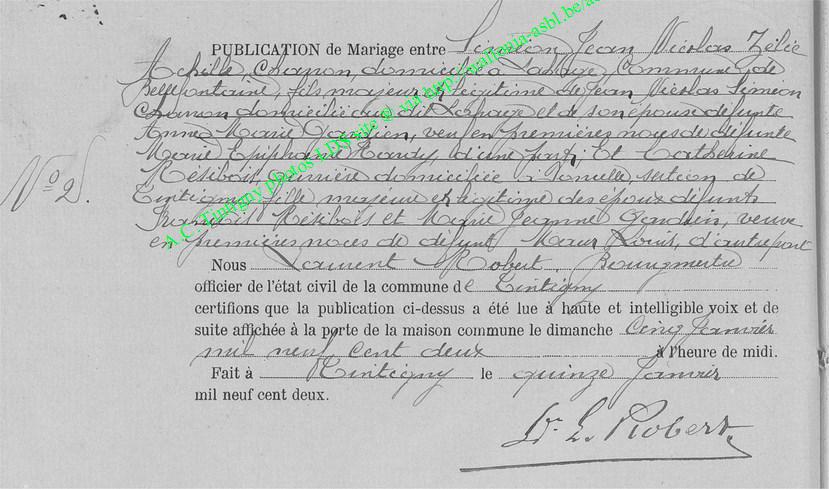 PUBLICATION de Mariage entre Siméon Jean Nicolas Zélie
Achille Chanon, domicilié à Lahage, Commune de
Bellefontaine, fils majeur et légitime de Jean Nicolas Siméon
Chanon domicilié au dit Lahage et de son épouse défunte
Anne Marie veuf en premières noces de défunte
Marie Tandy, d'une part, Et Catherine
Résibois, domiciliée à section de
Tintigny, fille majeure et légitime des époux défunts
François Résibois et Marie Jeanne veuve
en premières noces de défunt Louis, d'autre part
No 2.
Nous Laurent Robert Bourgmestre
officier de l'état civil de la commune de Tintigny
certifions que la publication ci-dessus a été lue à haute et intelligible voix et de
suite affichée à la porte de la maison commune le dimanche cinq Janvier
mil neuf cent deux à l'heure de midi.
Fait à Tintigny le quinze Janvier
mil neuf cent deux.
Dr L. Robert
A.C. Tintigny photos LDS site @ via http://wallonia-asbl.be/